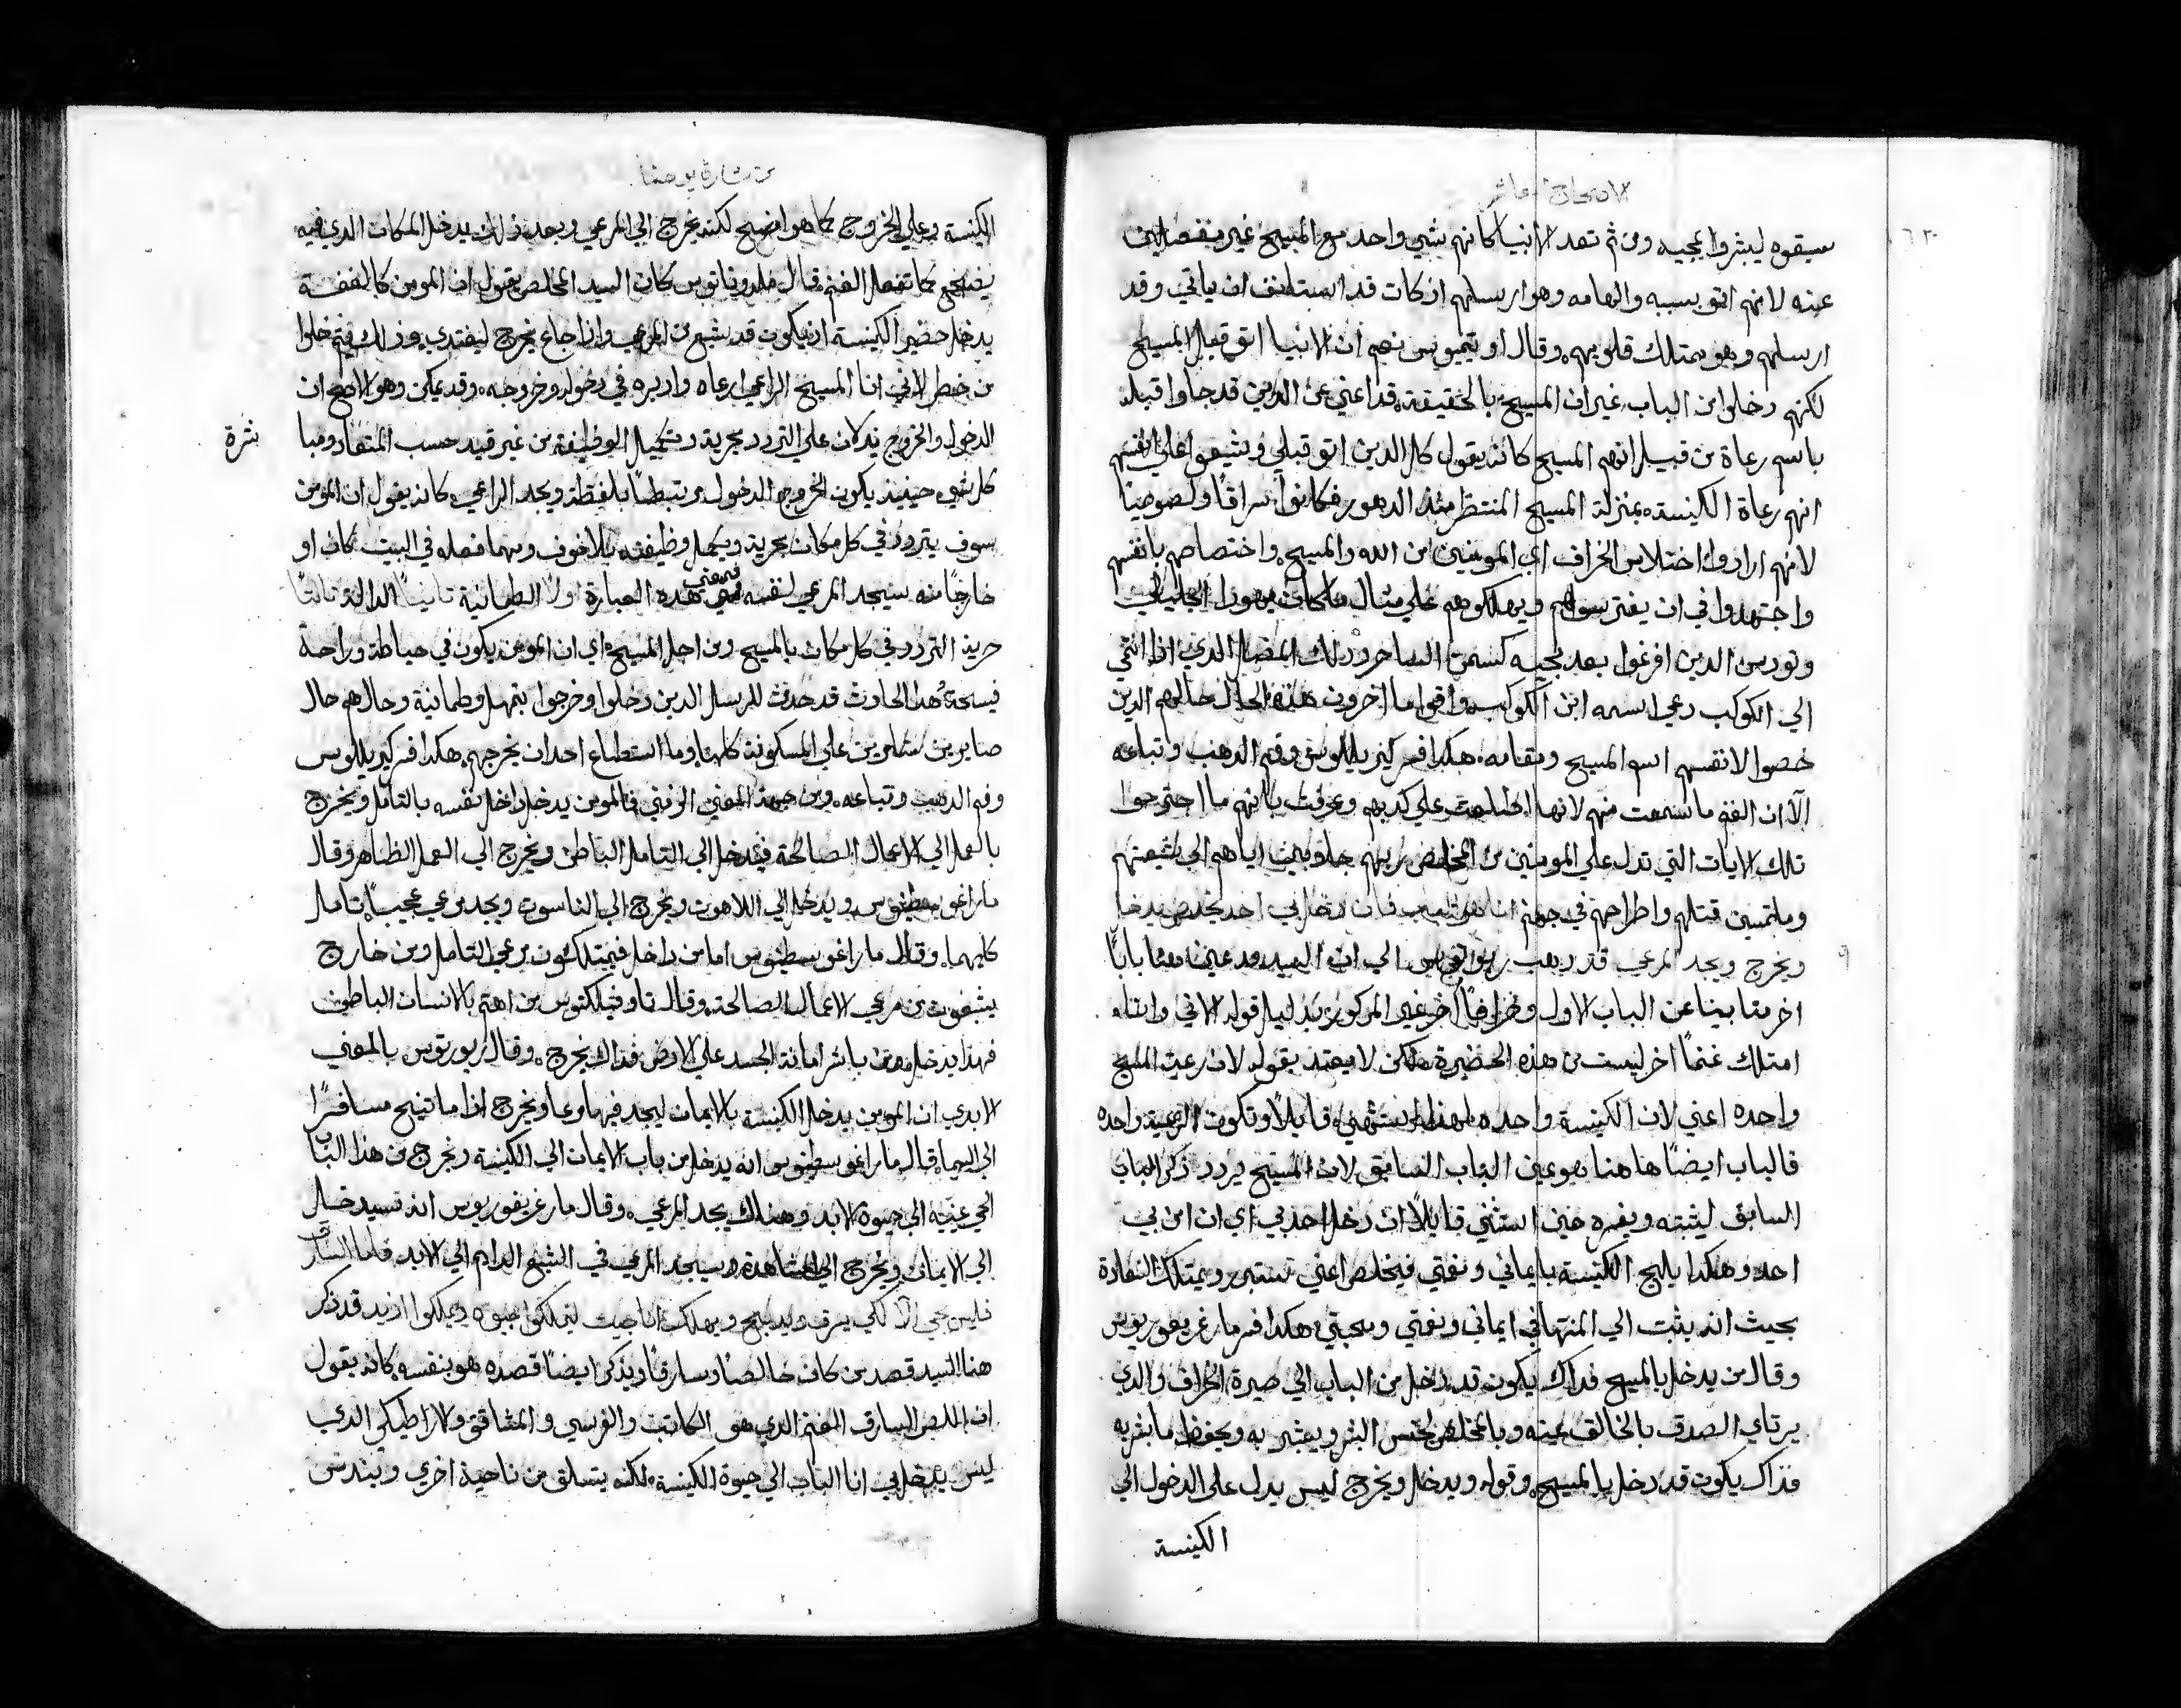 الاصحاح العاشر
سبقوه ليبشروا بمجيه ومن ثم تعد الانبيا كانهم بشي واحد مع المسيح غير منفصلين
عنه لانهم اتو بسببه والهامه وهو ارسلهم اذ كان قد استانف ان ياتي وقد
ارسلهم وهو يمتلك قلوبهم. وقال اوتيميوس نعم ان الانبيا اتو قبل المسيح
لكنهم دخلوا من الباب. غير ان المسيح بالحقيقة. قد اعني عن الدين قد جاوا قبله
باسم رعاة من قبيل انهم المسيح كانه يقول كل الدين اتو قبلي
انهم رعاة الكنيسة بمنزلة المسيح المنتظر منذ الدهور فكانوا سراقًا ولصوصًا
لانهم ارادوا اختلاس الخراف اي المومنين من الله والمسيح. واختصاصهم بانفسهم
واجتهدوا في ان يفترسوهم ويهلكوهم على مثال ما كان يهودا الجليلي
وتودس الدين افرغوا بعد مجيه كسمن الساحر وذلك المضل الدي اذا انتمي
الى الكوكب دعي اسمه ابن الكوكب. واقوام اخرون هذه الحال حالهم الدين
خصوا لانفسهم اسم المسيح ومقامه. هكذا فسر كيريللوس وفم الدهب وتباعه
الا ان الغنم ما سمعت منهم لانها اطلعت على كدبهم وعرفت بانهم ما اجترحوا
تلك الايات التي تدل على المومنين من المخلص ربهم
وملتمسين قتلهم واطراحهم في جهنم انا هو الباب فان دخل بي احد يخلص يدخل
٩ ويخرج ويجد المرعي قد دهب الى ان السيد قد عين هنا بابًا
اخر متباينًا عن الباب الاول وخروفًا اخر غير المدكور بدليل قوله الاتي وانا
امتلك غنمًا اخر ليست من هذه الحضيرة ولكن لا يعتد بقوله لان رعية المسيح
واحده اعني لان الكنيسة واحده قايلًا وتكون الرعية واحده
فالباب ايضًا هاهنا هو عين الباب السابق لان المسيح يردد ذكر الباب
السابق ليثبته ويفسره حين استثني قايلًا ان دخل احد بي اي ان امن بي
احد وهكذا يلج الكنيسة بايماني ونعمتي فيخلص اعني يستبرر ويمتلك السعادة
بحيث انه يثبت الي المنتها في ايماني ونعمتي ومحبتي هكذا فسر مار غريغوريوس
وقال من يدخل بالمسيح فداك يكون قد دخل من الباب الي صيرة الخراف والدي
يرتاي الصدق بالخالق عينه وبالمخلص لجنس البشر ويعتبر به ويحفظ ما بشر به
فداك يكون قد دخل بالمسيح. وقوله ويدخل ويخرج ليس يدل على الدخول الي
الكنيسة
من بشارة يوحنا
الكنيسة وعلي الخروج كما هو اوضح لكنه يخرج الي المرعي وبعد ذلك يدخل المكان الدي فيه
يضجع كما تفعل الغنم. قال ملدوناتوس كان السيد المخلص يقول ان المومن كالنعجة
يدخل حضير الكنيسة اذ يكون قد شبع من المرعي واذا جاع يخرج ليغتدي
من خطر لاني انا المسيح الراعي ارعاه وادبره في دخوله وخروجه. وقد يمكن وهو الاصح ان
الدخول والخروج يدلان على التردد بحرية وتكميل الوظيفة من غير قيد حسب المتعاد
كل شي. حينيذ يكون الخروج والدخول مرتبطًا بلفظة ويجد المراعي. كانه يقول ان المومن
سوف يتردد في كل مكان بحرية ويكمل وظيفته بلا خوف ومهما فعله في البيت كان او
خارجًا منه سيجد المرعي لنفسه فمعني هذه العبارة اولًا الطمانية ثانيًا الدالة ثالثًا
حرية التردد في كل مكان بالمسيح ومن اجل المسيح. اي ان المومن يكون في حياطة وراحة
فسيحة. هذا الحادث قد حدث للرسل الدين دخلوا وخرجوا بتمهل وطمانية وحالهم حال
صابرين متسلمين على المسكونة كلها وما استطاع احد ان يخرجهم. هكذا فسر كيريللوس
وفم الدهب وتباعه. ومن جهة المعني الرمزي فالمومن يدخل داخل نفسه بالتامل ويخرج
بالعمل الي الاعمال الصالحة فيدخل الي التامل الباطن ويخرج الي العمل الظاهر وقال
مار اغوسطينوس ويدخل الي اللاهوت ويخرج الي الناسوت ويجد مرعي عجيبًا بتامل
كليهما. وقال مار اغوسطينوس اما من داخل فيمتلكون مرعي التامل ومن خارج
يشبعون من مرعي الاعمال الصالحة. وقال تاوفيلكتوس من اهتم بالانسان الباطن
فهذا يدخل ومن باشر اماتة الجسد على الارض فداك يخرج. وقال روبرتوس بالمعني
الابدي ان المومن يدخل الكنيسة بالايمان ليجد فيها مرعا ويخرج اذا ما تنيح مسافرًا
الى السما. قال مار اغوسطينوس انه يدخل من باب الايمان الي الكنيسة ويخرج من هذا الباب
الى حيوة الابد وهناك يجد المرعي. وقال مار غريغوريوس انه سيدخل
الي الايمان ويخرج الي المشاهدة وسيجد المرعي في الشبع الدايم الي الابد فاما السارق
فليس يجي الا لكي يسرق ويدبح ويهلك انا جيت لتملكوا حيوة وتملكوا ازيد قد ذكر
هنا السيد قصد من كان لصًا وسارقًا ويذكر ايضًا قصده هو بنفسه كانه يقول
ان اللص السارق الغنم الدي هو الكاتب والفريسي والمشاقق والاراطيكي الدي
ليس يدخل بي انا الباب الي حيوة الكنيسة. لكنه يتسلق من ناحية اخري ويندس